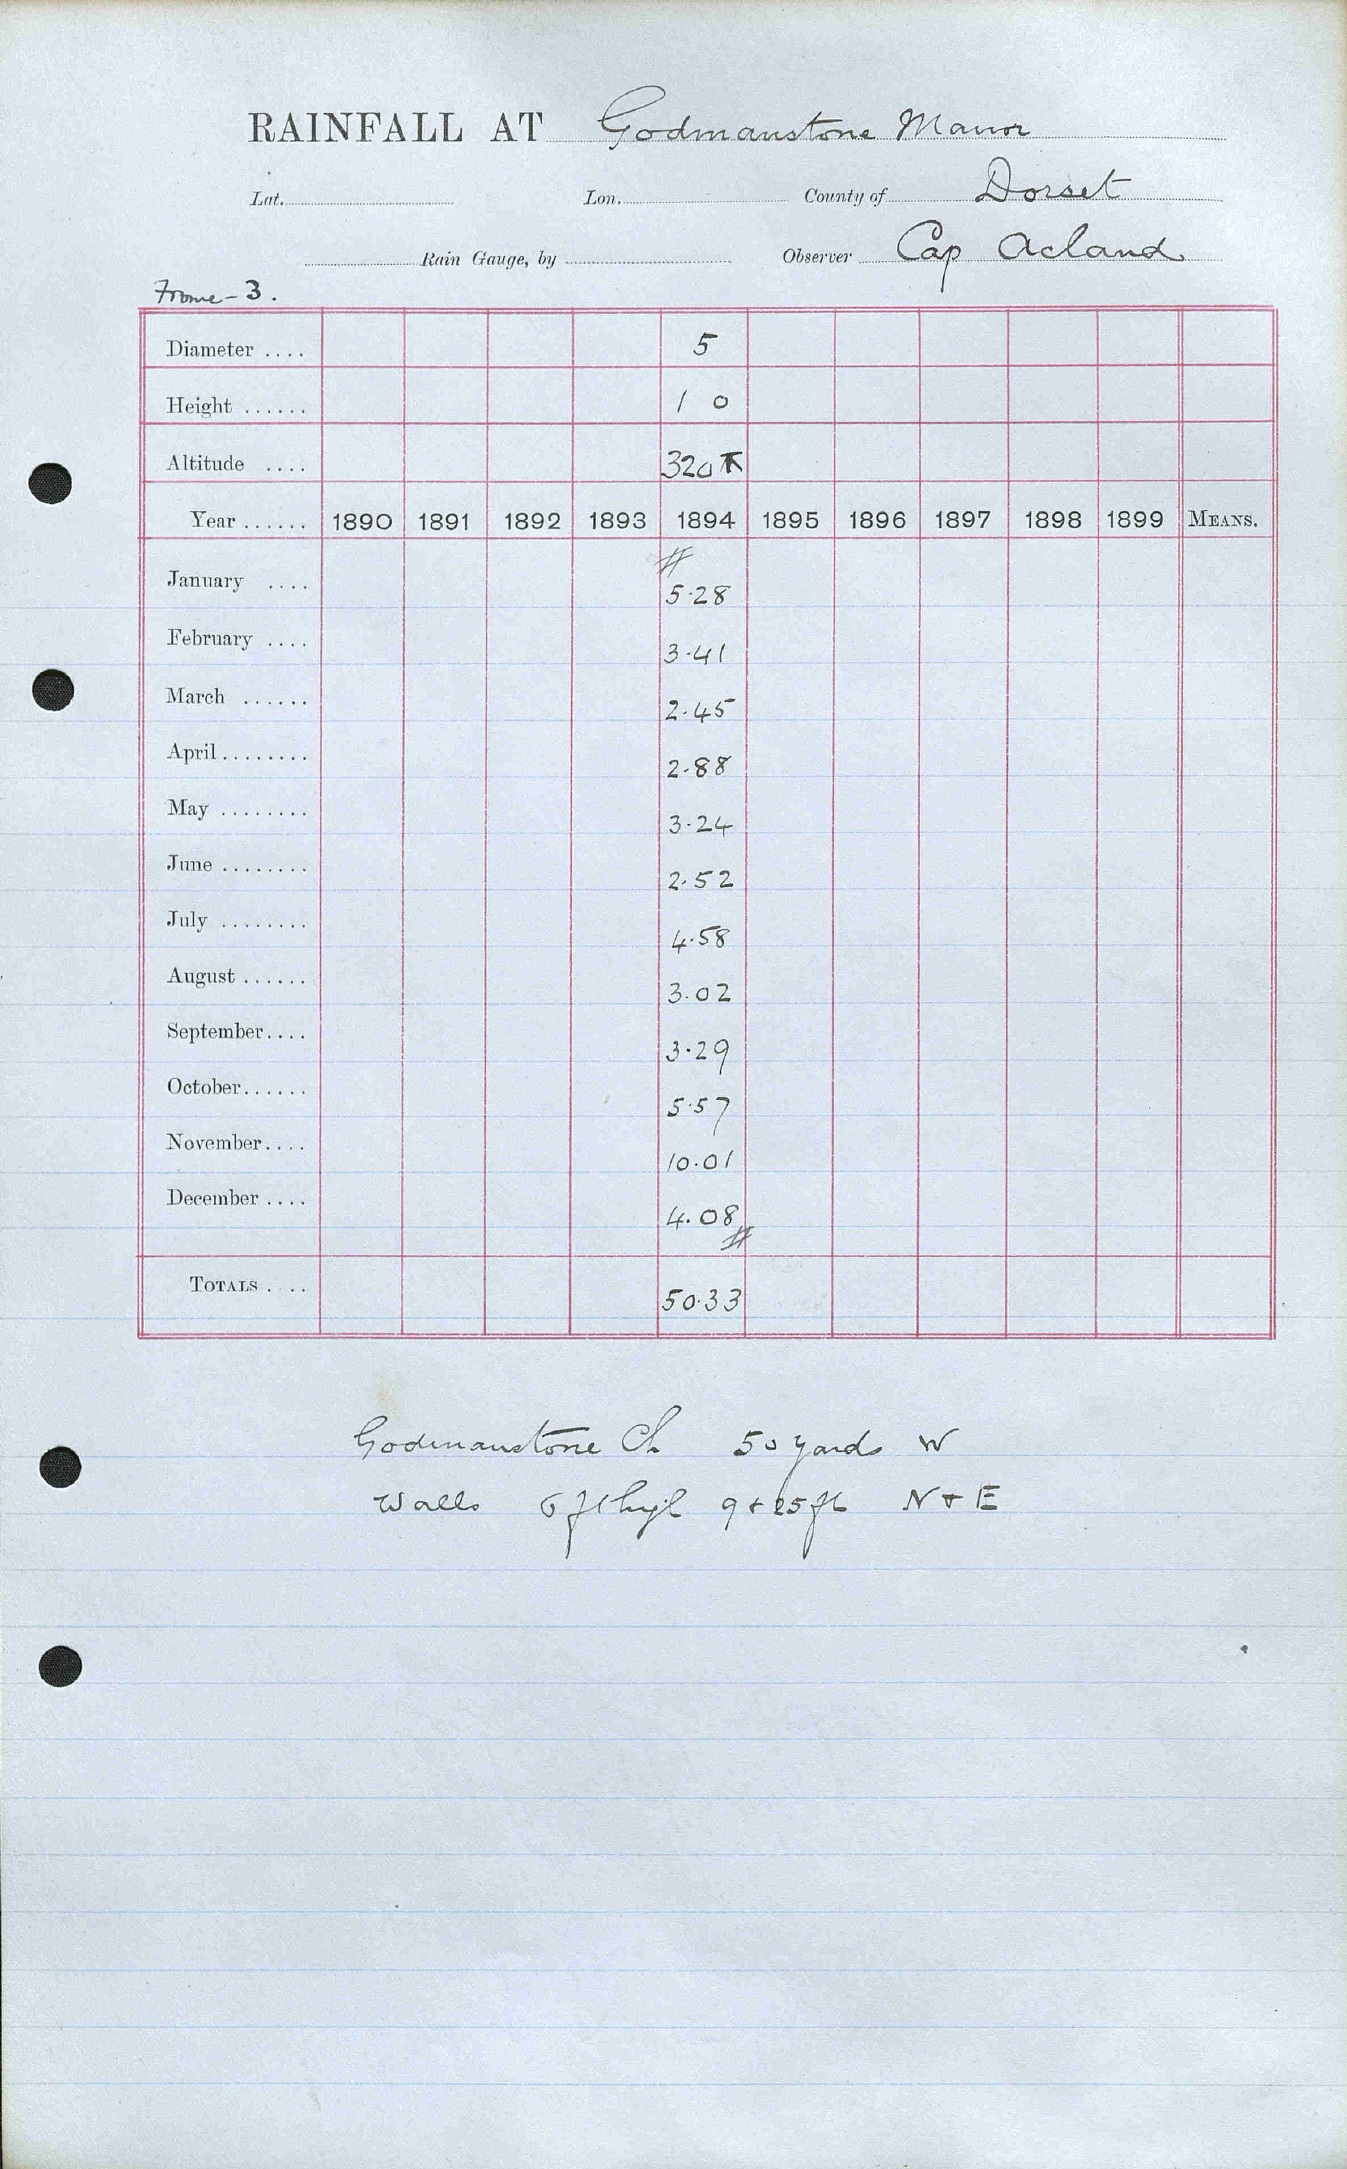 RAINFALL AT Godmanstone Manor
Lat. Lon. County of Dorset
Rain Gauge, by Observer Cap Acland
Frome - 3.
Diameter .... 5
Height ...... 1 0
Altitude .... 320 T
Year ...... 1890 1891 1892 1893 1894 1895 1896 1897 1898 1899 MEANS.
#
January .... 5.28
February .... 3.41
March ...... 2.45
April ........ 2.88
May ........ 3.24
June ........ 2.52
July ........ 4.58
August ...... 3.02
September .... 3.29
October ...... 5.57
November .... 10.01
December .... 4.08
#
TOTALS .... 50.33
Godmanstone Ch 50 yards W
Walls 6 ft high 9 + 25 ft N + E